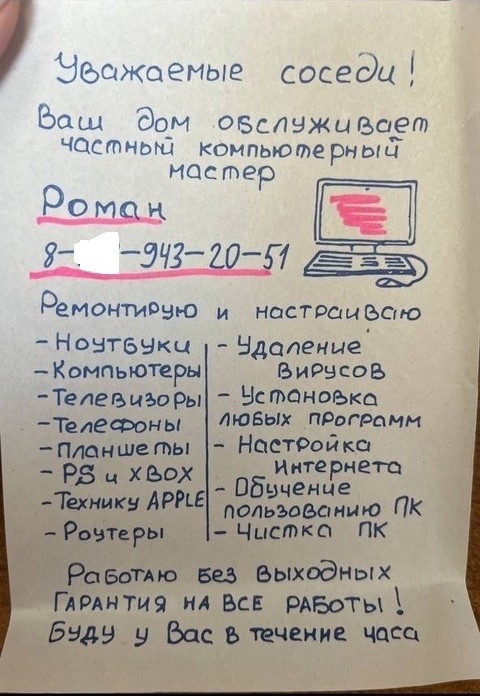 Уважаемые соседи!
Ваш дом обслуживает
частный компьютерный
мастер
Роман
8- -943-20-51
Ремонтирую и настраиваю
- Ноутбуки
- Компьютеры
- Телевизоры
- Телефоны
- Планшеты
- PS и XBOX
- Технику APPLE
- Роутеры
- Удаление
вирусов
- Установка
любых программ
- Настройка
интернета
- Обучение
пользованию ПК
- Чистка ПК
Работаю без выходных
Гарантия на все работы!
Буду у Вас в течение часа